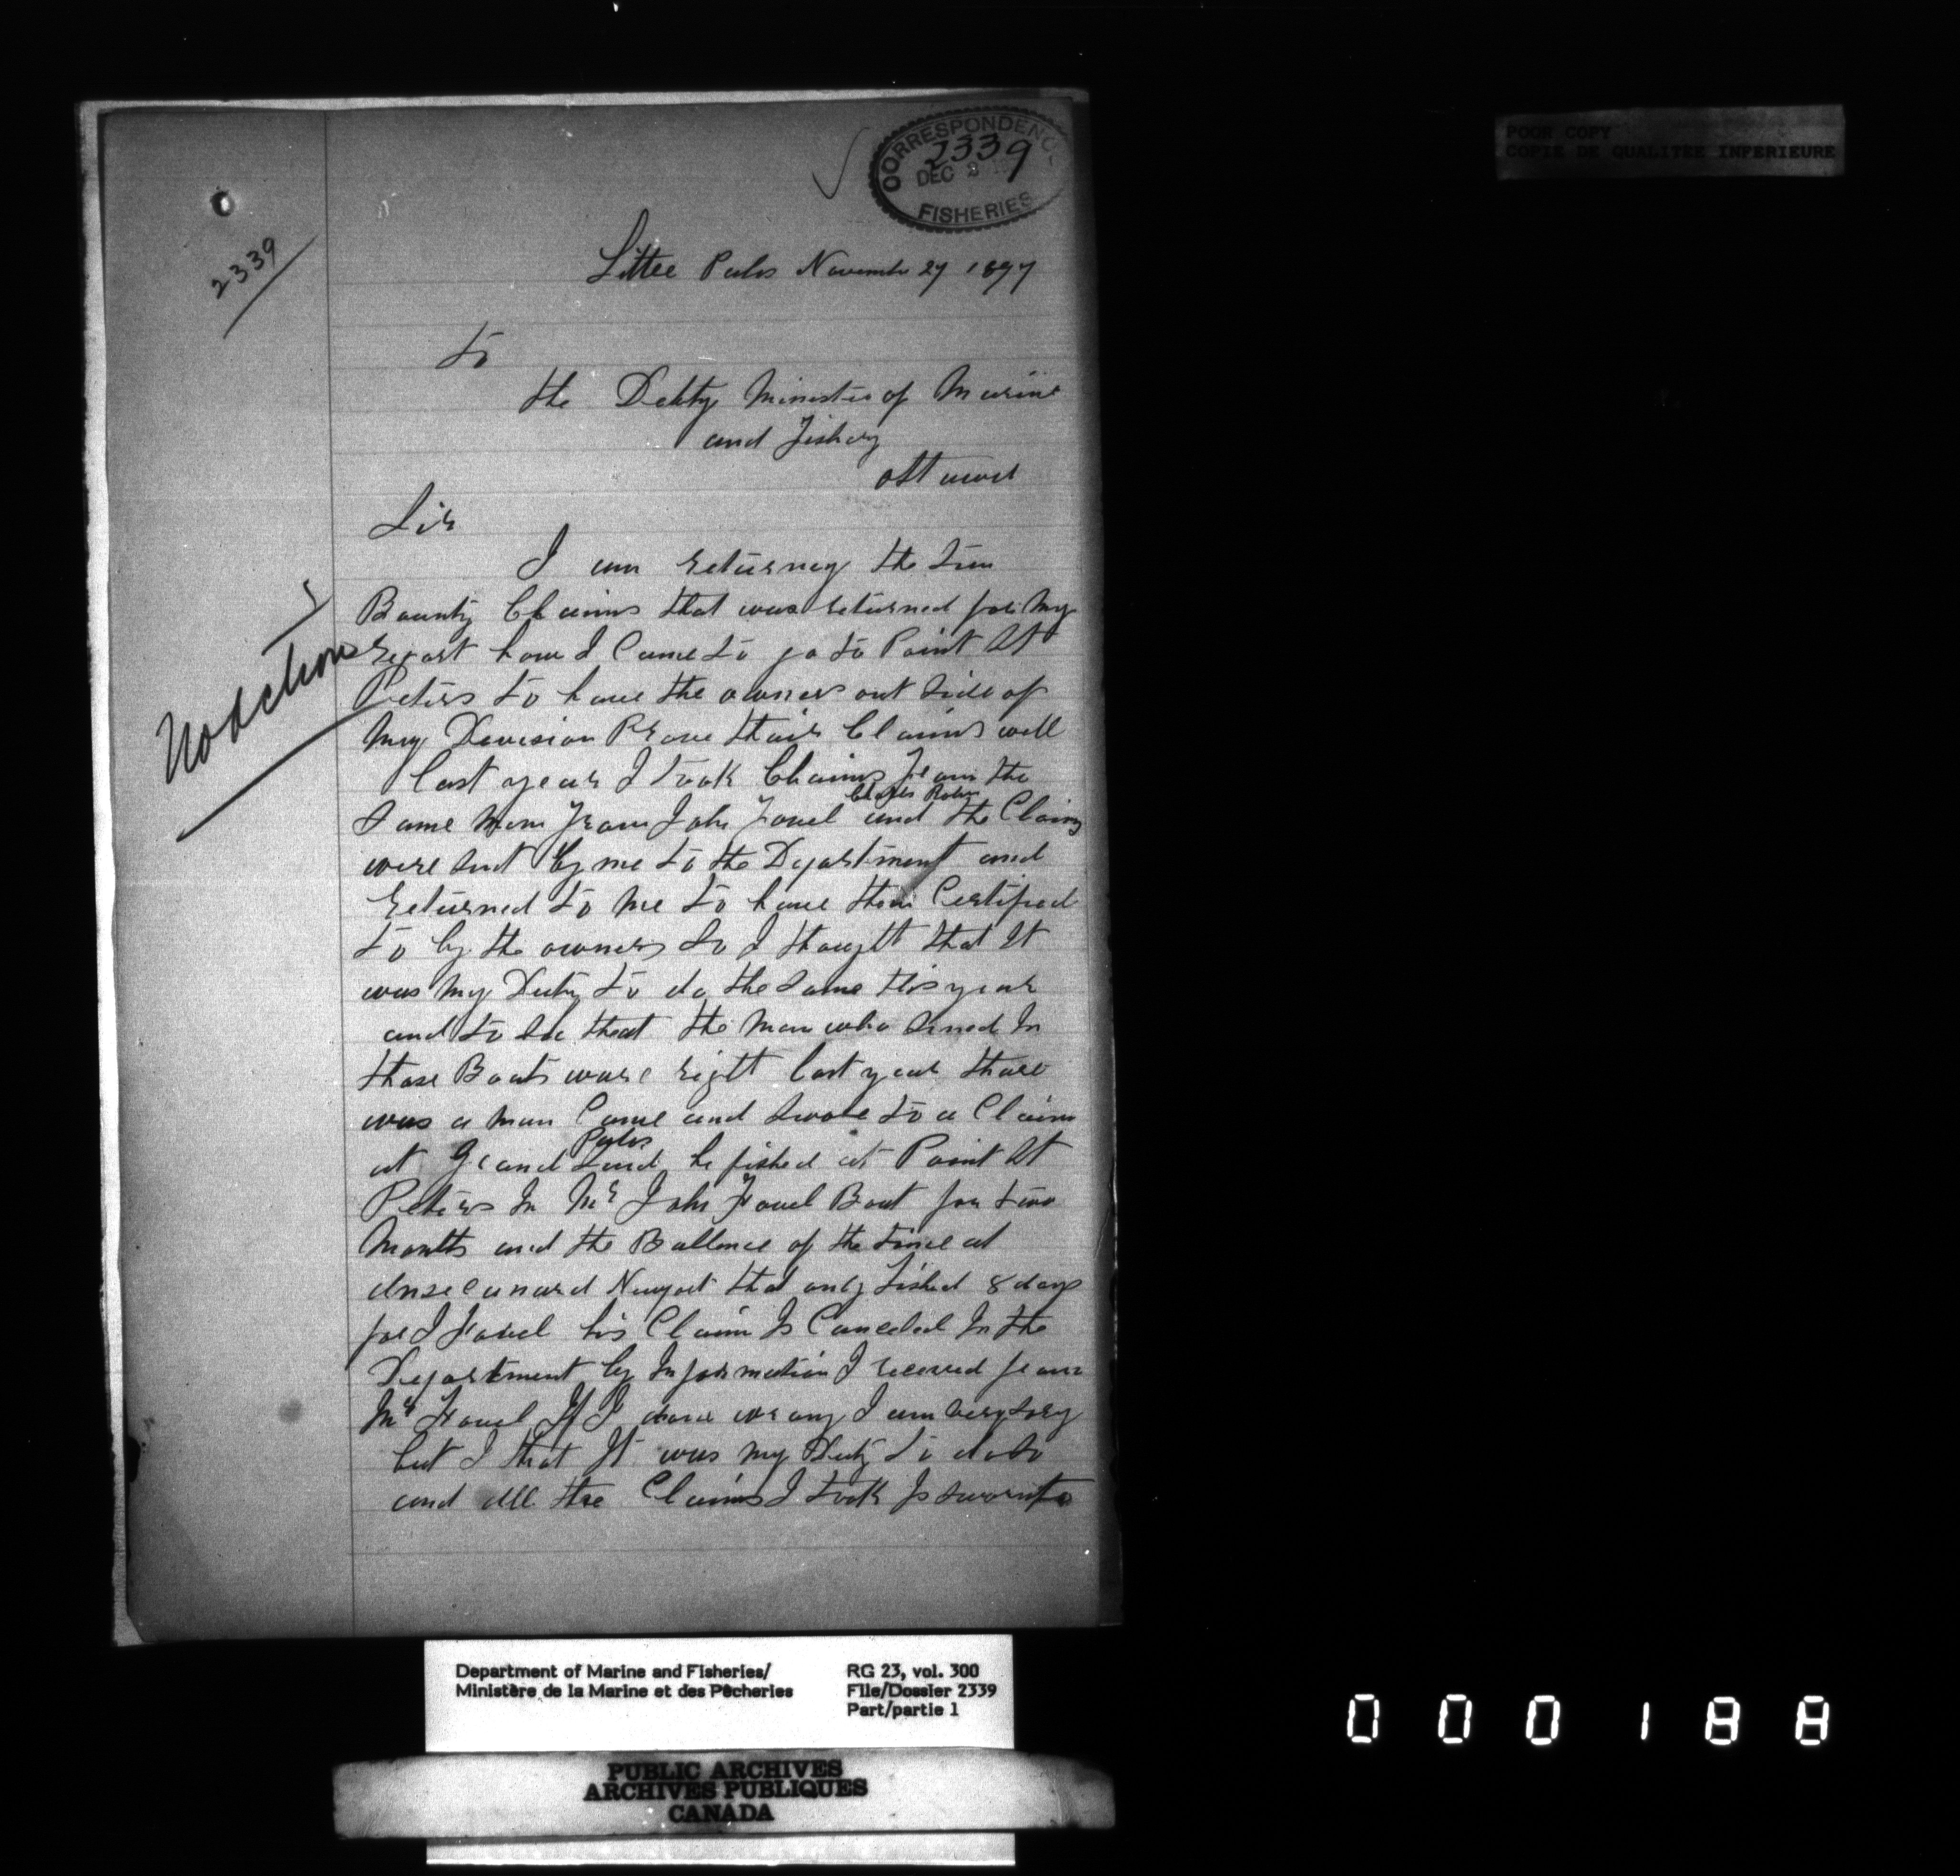 POOR COPY
COPIE DE QUALITEE INFERIEURE
CORRESPONDENC
2339
DEC 2
FISHERIES
2339
Little Pabos November 27 1897
To
the Debty Minister of Marine
and Fishery
Ottawa
Sir
I am returning the
Bounty Claims that was returned for My
report how I Came to go to Point St
Peters to have the owners out Side of
My Devision Prove thair Claims well
last year I took Claims From the
Same From John Fauvel Charles Robin and the Claims
were sent by me to the Department and
returned to Me to have them Certified
to by the owners So I thought that It
was My Duty to do the Same this year
and to See that the Man who Sined In
those Boats ware right last year thare
was a man Came and Swore to a Claim
at Grand Pabos he fished at Point St
Peters In Mr John Fauvel Boat for two
Months and the Ballance of the time at
Anse Canard Newport that only Fished 8 days
for J Fauvel his Claim Is Canceled In the
Department by Information I received from
Mr Fauvel If I done wrong I am very Sory
but I that It was my Duty to do So
and all the Claims I took Is sworn to
No Action
Department of Marine and Fisheries/
Ministère de la Marine et des Pêcheries
RG 23, vol. 300
File/Dossier 2339
Part/partie 1
PUBLIC ARCHIVES
ARCHIVES PUBLIQUES
CANADA
000188